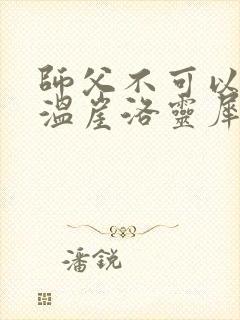 師父不可以
溫崖洛靈犀
潘銳